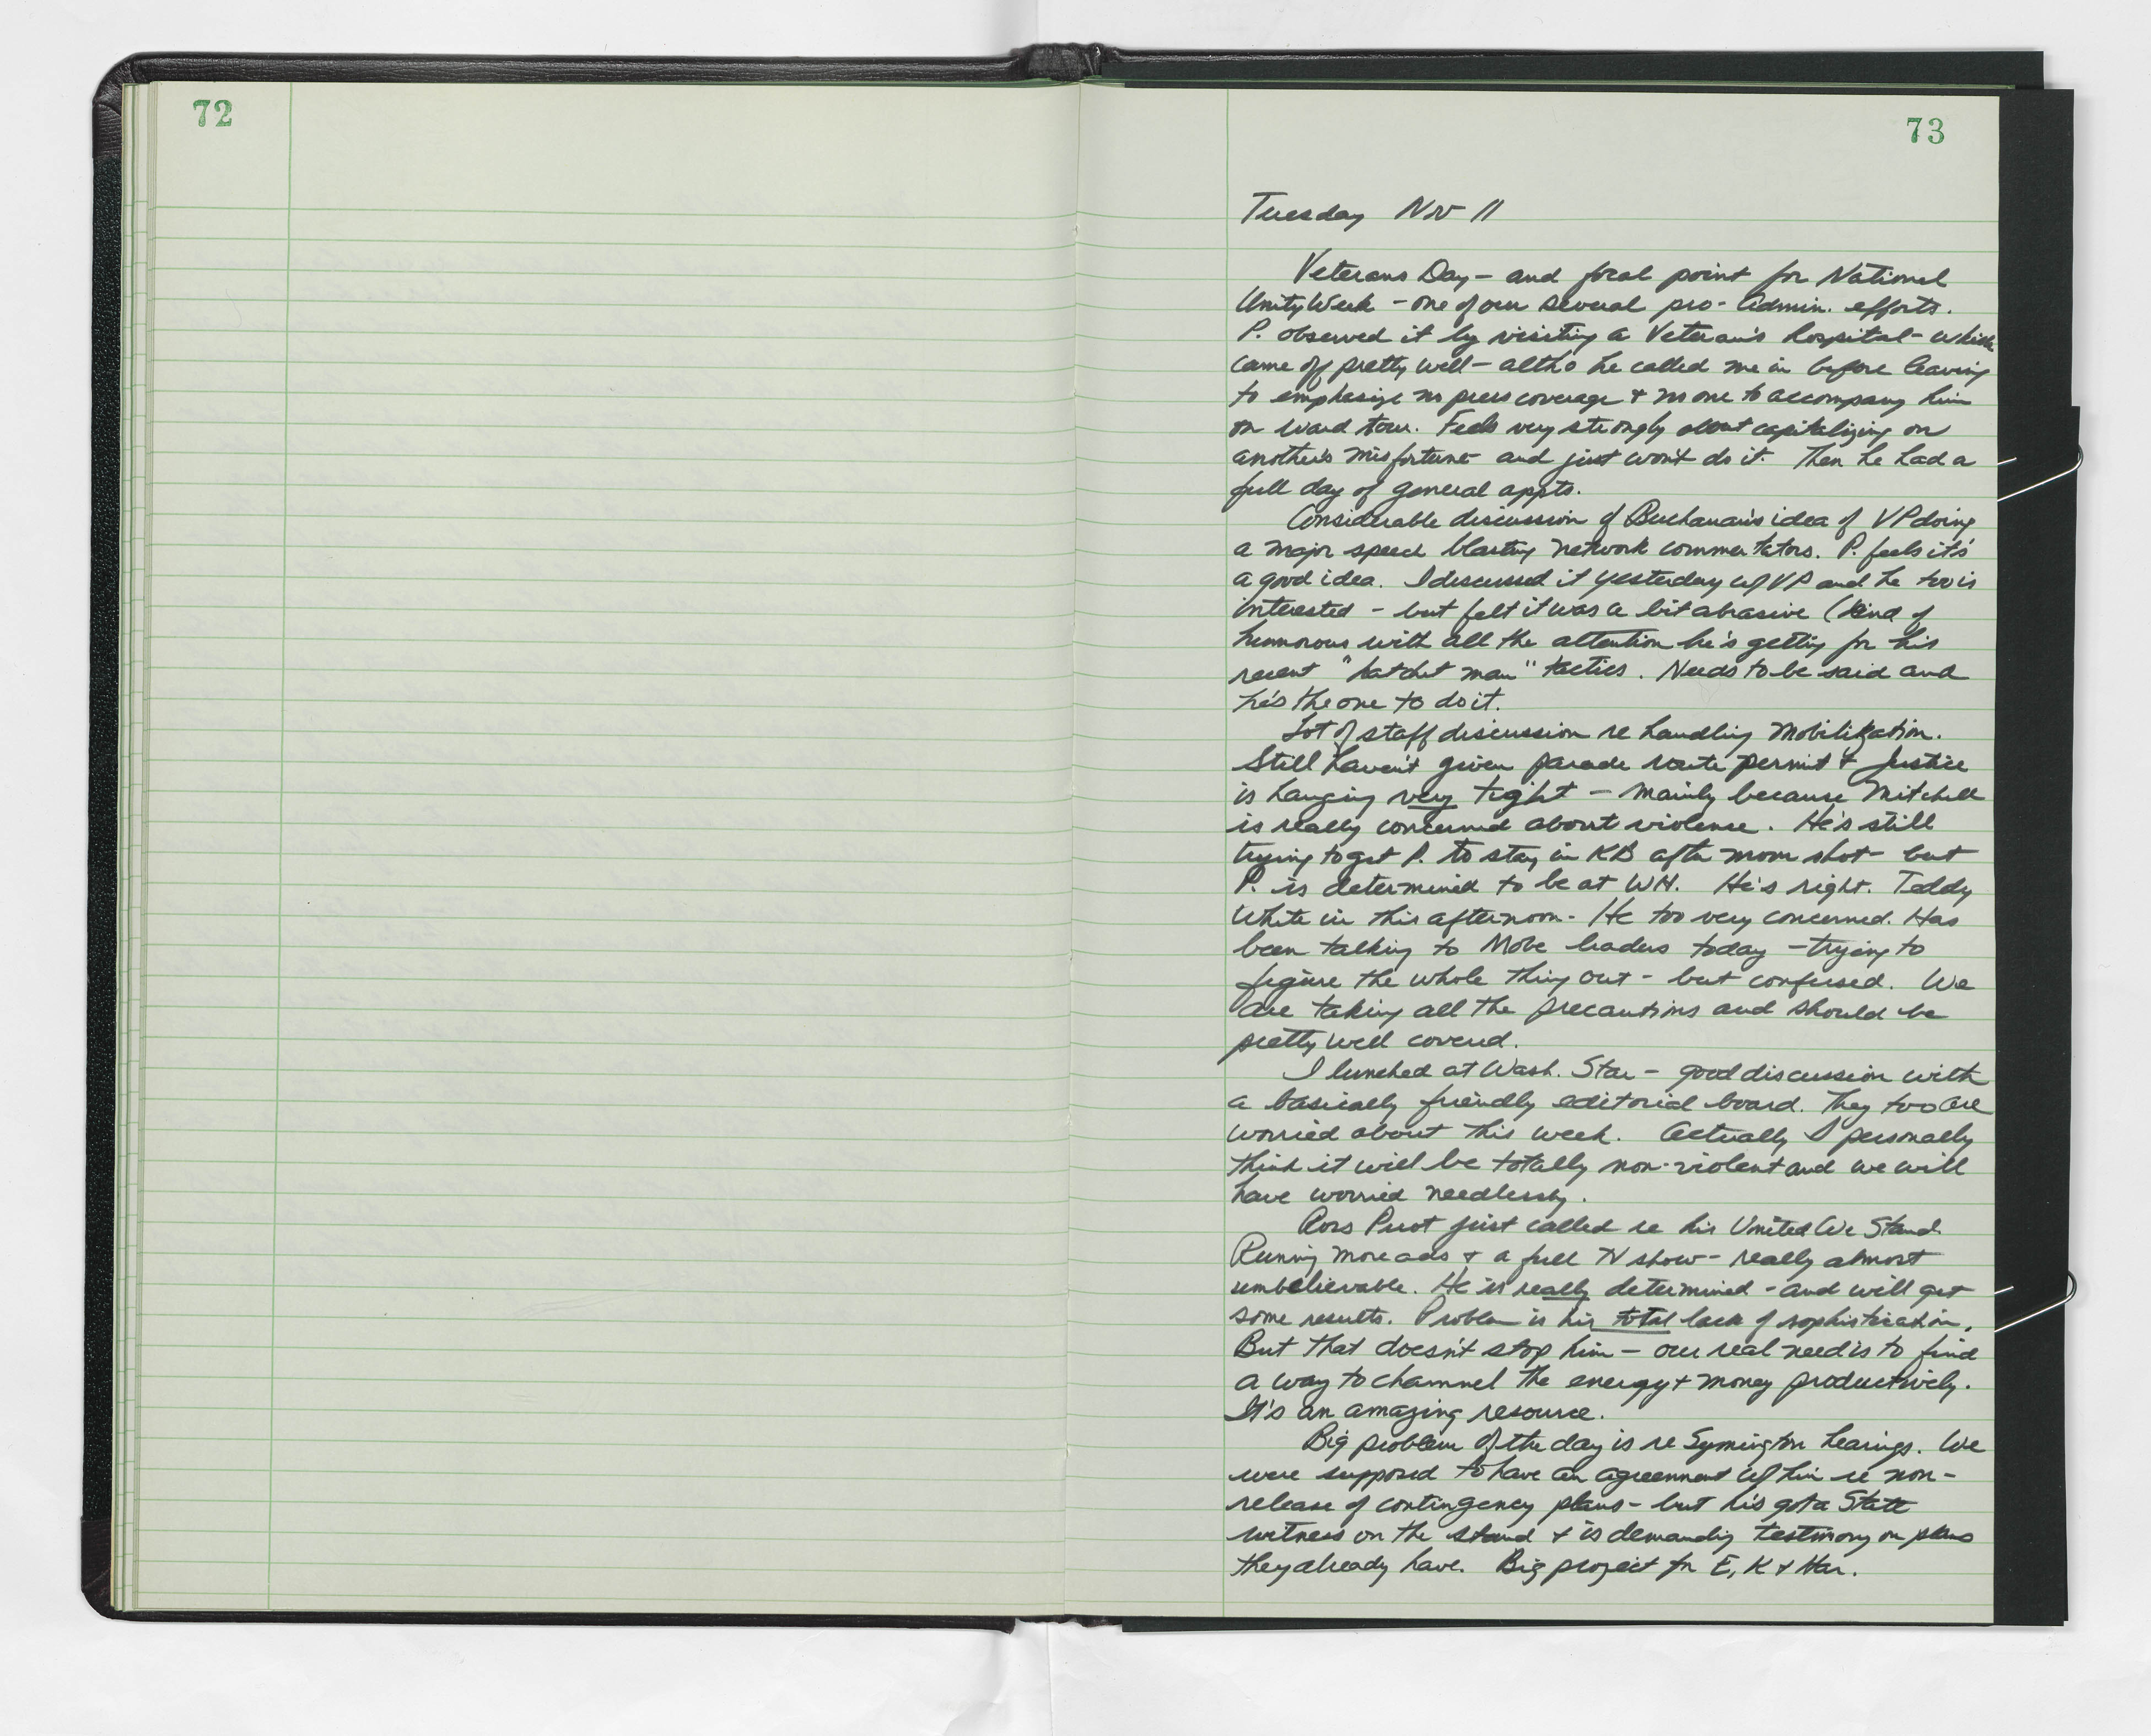 72
73
Tuesday Nov 11
Veterans Day - and focal point for National
Unity Week - one of our several pro-Admin. efforts.
P. observed it by visiting a Veteran's hospital - which
came off pretty well - altho he called me in before leaving
to emphasize no press coverage + no one to accompany him
on ward tour. Feels very strongly about capitalizing on
another's misfortune and just won't do it. Then he had a
full day of general appts.
Considerable discussion of Buchanan's idea of VP doing
a major speech blasting network commentators. P. feels it's
a good idea. I discussed it yesterday w/VP and he too is
interested - but felt it was a bit abrasive (kind of
humorous with all the attention he's getting for his
recent "hatchet man" tactics. Needs to be said and
he's the one to do it.
Lot of staff discussion re handling Mobilization.
Still haven't given parade route permit + Justice
is hanging very tight - mainly because Mitchell
is really concerned about violence. He's still
trying to get P. to stay in KB after moon shot - but
P. is determined to be at WH. He's right. Teddy
White in this afternoon - He too very concerned. Has
been talking to Mobe leaders today - trying to
figure the whole thing out - but confused. We
are taking all the precautions and should be
pretty well covered.
I lunched at Wash. Star - good discussion with
a basically friendly editorial board. They too are
worried about this week. Actually I personally
think it will be totally non-violent and we will
have worried needlessly.
Ross Perot just called re his United We Stand.
Running more ads + a full TV show - really almost
unbelievable. He is really determined - and will get
some results. Problem is his total lack of sophistication.
But that doesn't stop him - our real need is to find
a way to channel the energy + money productively.
It's an amazing resource.
Big problem of the day is re Symington hearings. We
were supposed to have an agreement w/him re non-
release of contingency plans - but he's got a State
witness on the stand + is demanding testimony on plans
they already have. Big project for E, K + Har.